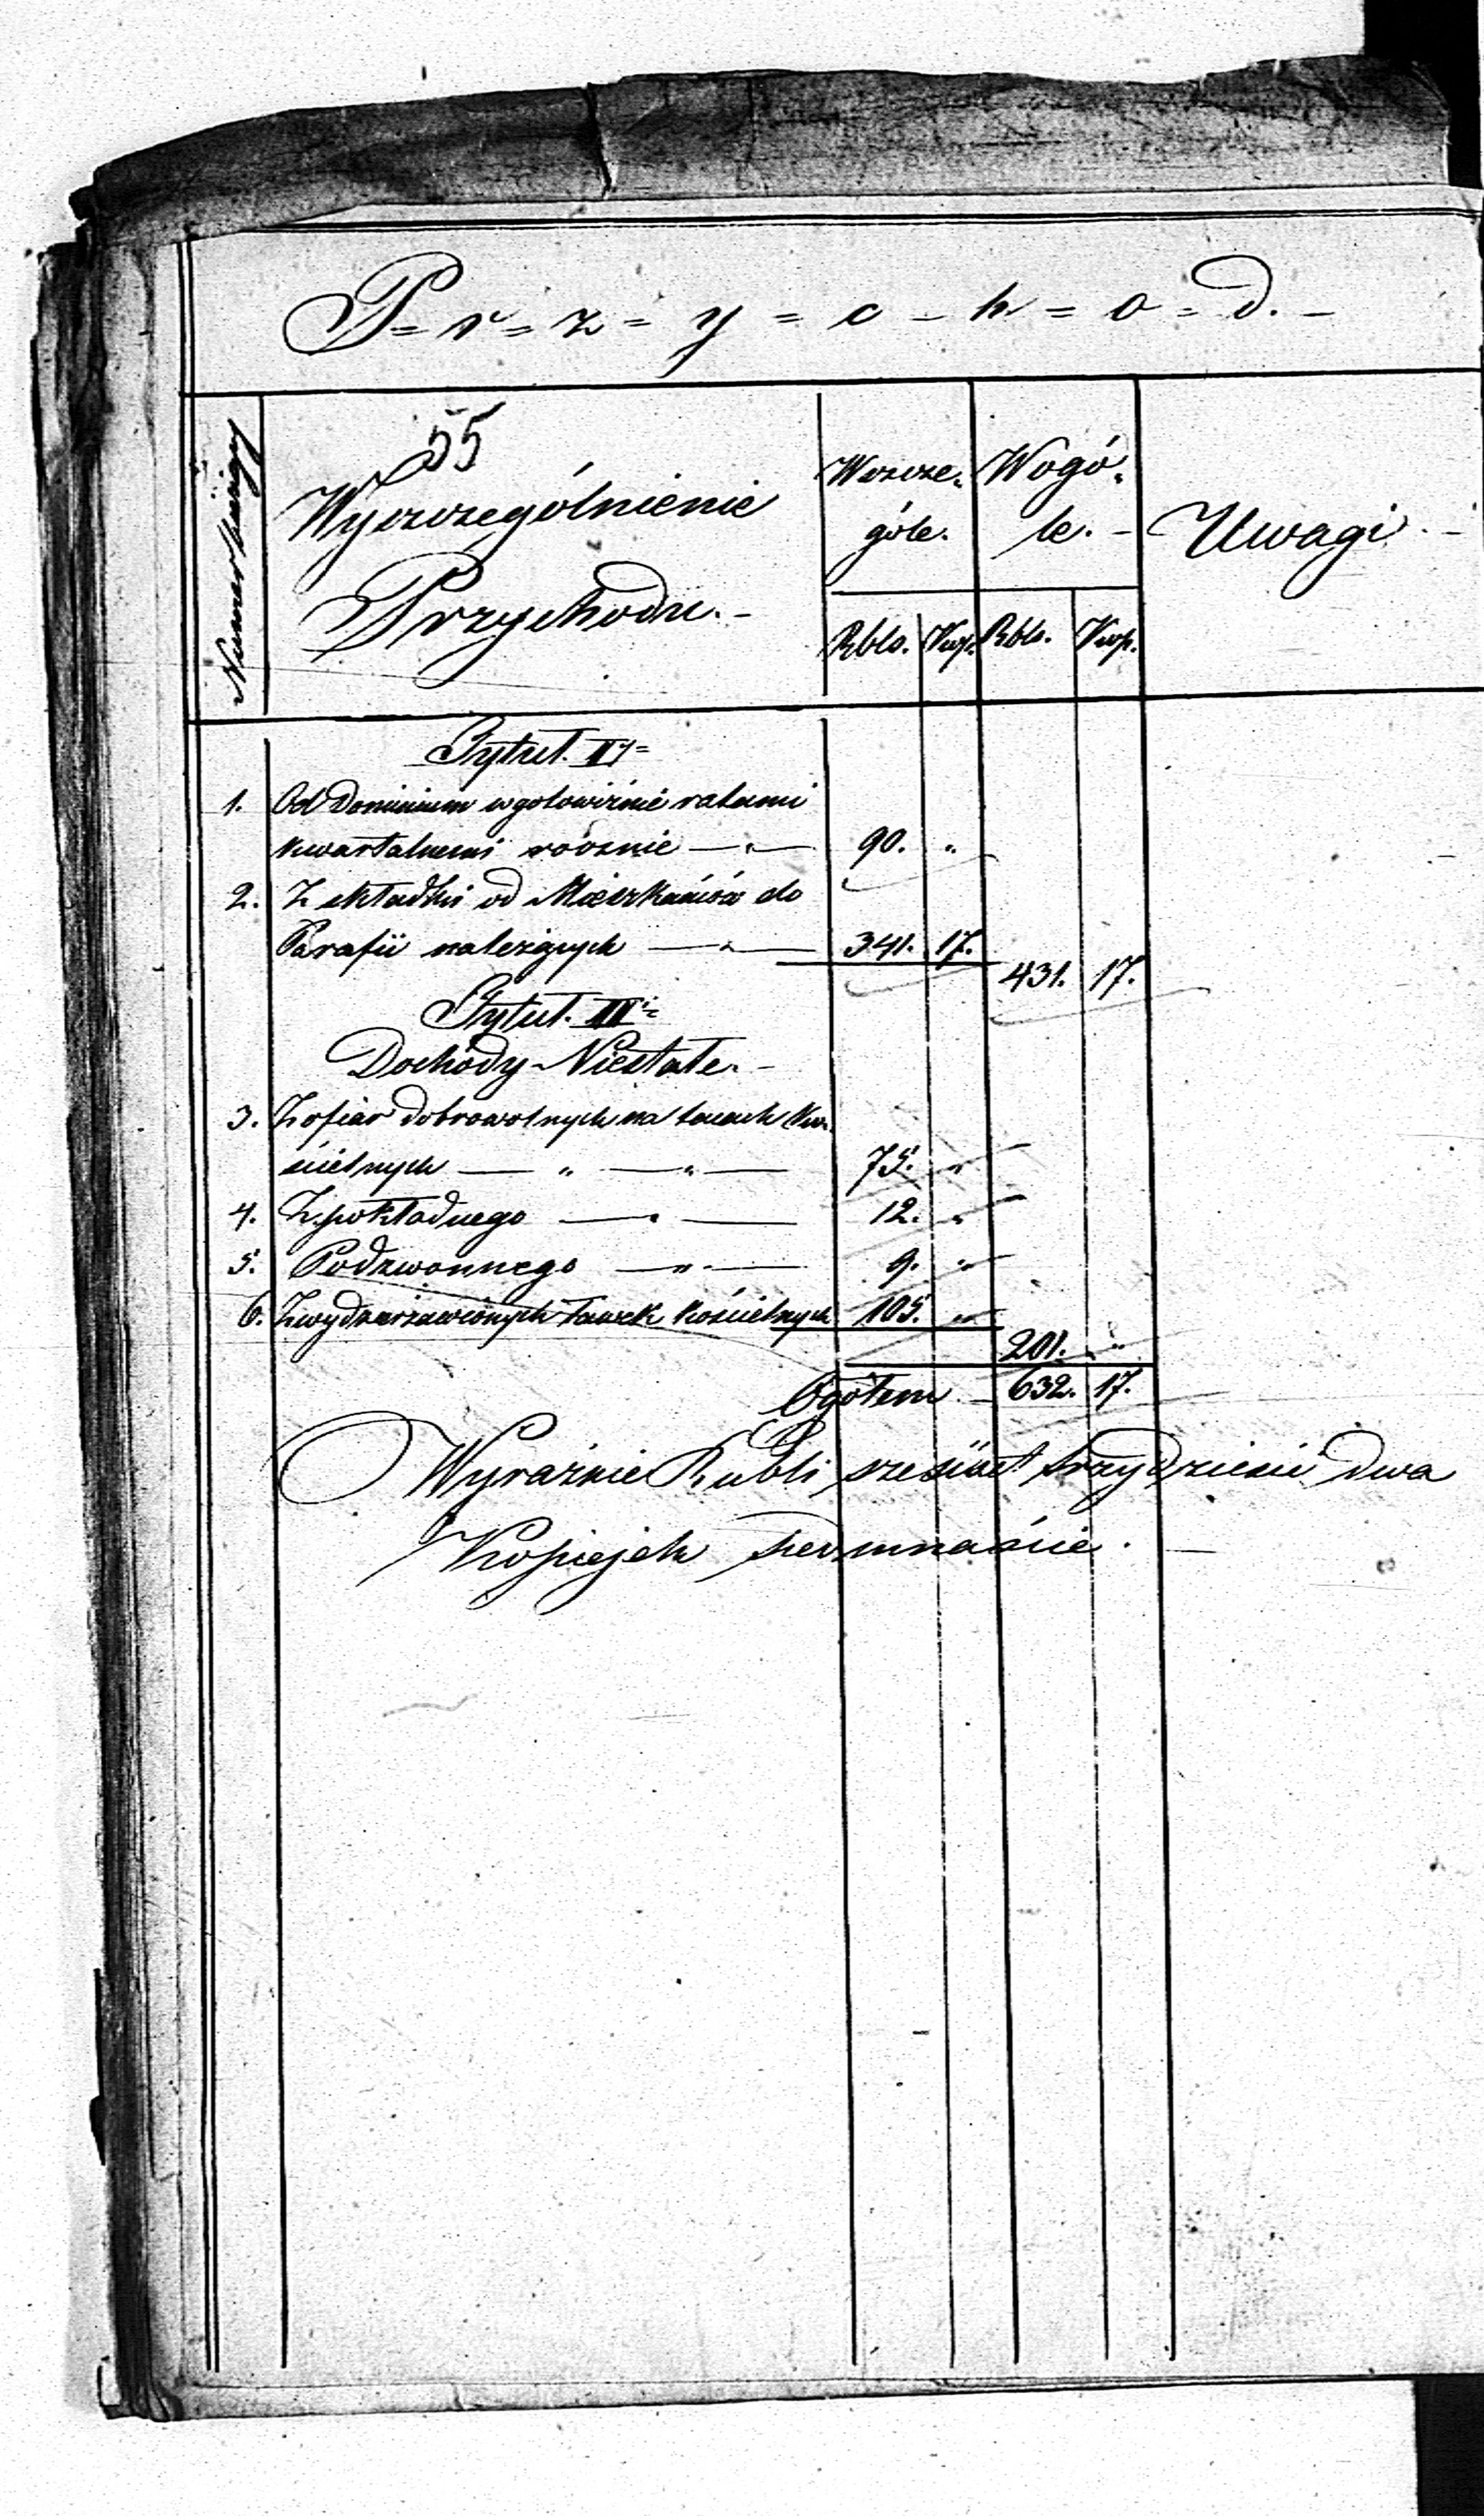 P=r=z=y=c=h=o=d.-
55
Numer bieżący
Wyszczególnienie
Przychodu.-
Wszcze-
góle.
Wogó-
le.-
Uwagi.-
Rbls. Kop. Rbls. Kop.
Tytuł. I
1. Od Dominium w gotowiźnie ratami
kwartalnemi rocznie — " — 90. "
2. Z składki od Mieszkańców do
Parafii należących — " — 341. 17.
431. 17.
Tytuł. II
Dochody Niestałe.-
3. Z ofiar dobrowolnych na tacach Ko-
ścielnych — " — " — 75. "
4. Z pokładnego — " — 12. "
5. Podzwonnego — " — 9. "
6. Z wydzierżawionych ławek kościelnych 105. "
201. "
Ogółem - 632. 17.
Wyraźnie Rubli sześćset trzydzieści dwa
Kopiejek siedmnaście. —